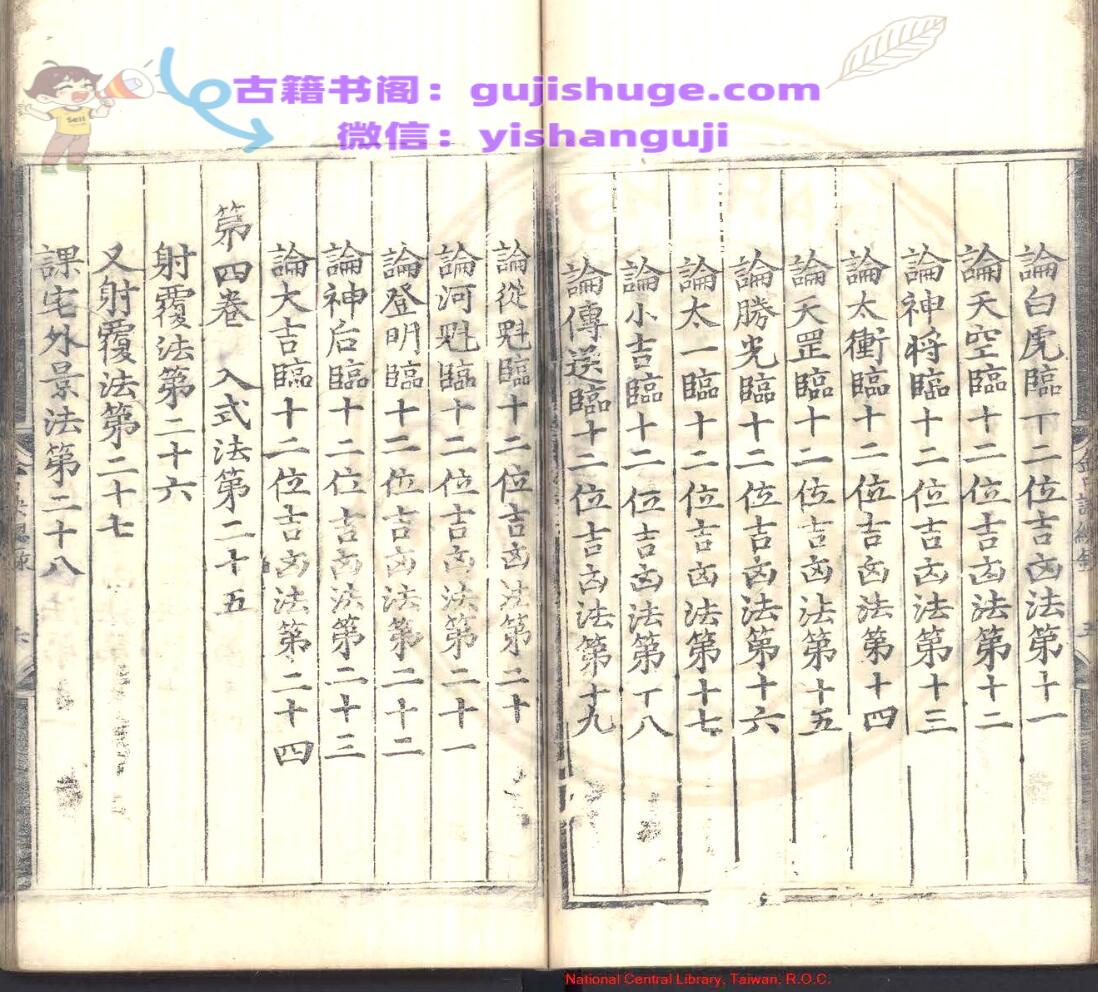 古籍书阁：gujishuge.com
微信：yishanguji
Sell
論白虎臨十二位吉凶法第十一
論天空臨十二位吉凶法第十二
論神將臨十二位吉凶法第十三
論太衝臨十二位吉凶法第十四
論天罡臨十二位吉凶法第十五
論勝光臨十二位吉凶法第十六
論太一臨十二位吉凶法第十七
論小吉臨十二位吉凶法第十八
論傳送臨十二位吉凶法第十九
論從魁臨十二位吉凶法第二十
論河魁臨十二位吉凶法第二十一
論登明臨十二位吉凶法第二十二
論神后臨十二位吉凶法第二十三
論大吉臨十二位吉凶法第二十四
第四卷 入式法第二十五
射覆法第二十六
又射覆法第二十七
課宅外景法第二十八
National Central Library, Taiwan, R.O.C.